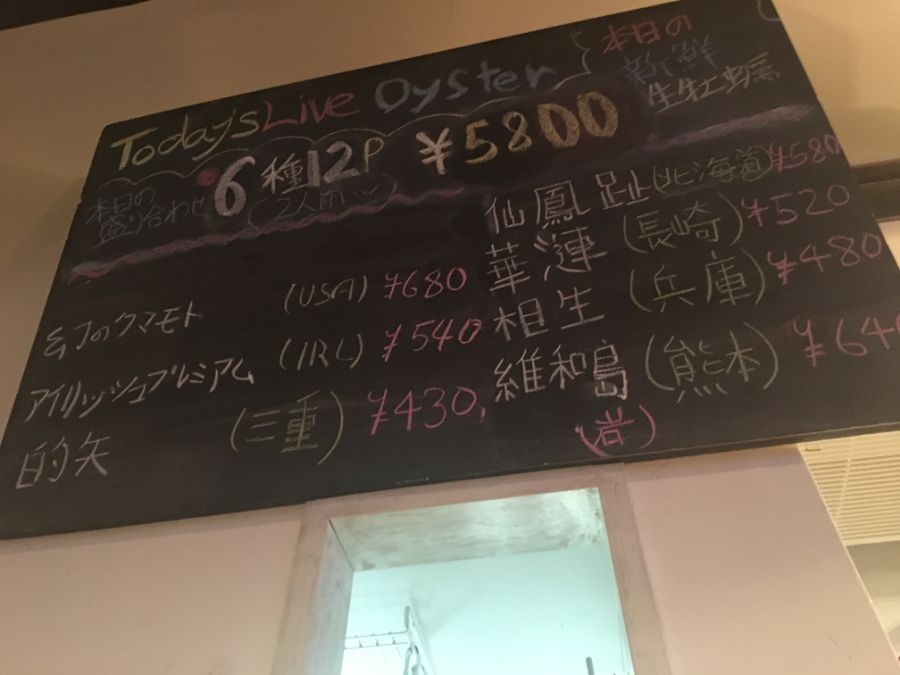 Today's Live Oyster
本日の
新鮮
生牡蠣
本日の
盛り合わせ
6種12P ¥5800
(2人前〜)
幻のクマモト (USA) ¥680
アイリッシュプレミアム (IRL) ¥540
的矢 (三重) ¥430
仙鳳趾 (北海道) ¥580
華漣 (長崎) ¥520
相生 (兵庫) ¥480
維和島 (熊本) ¥640
(岩)